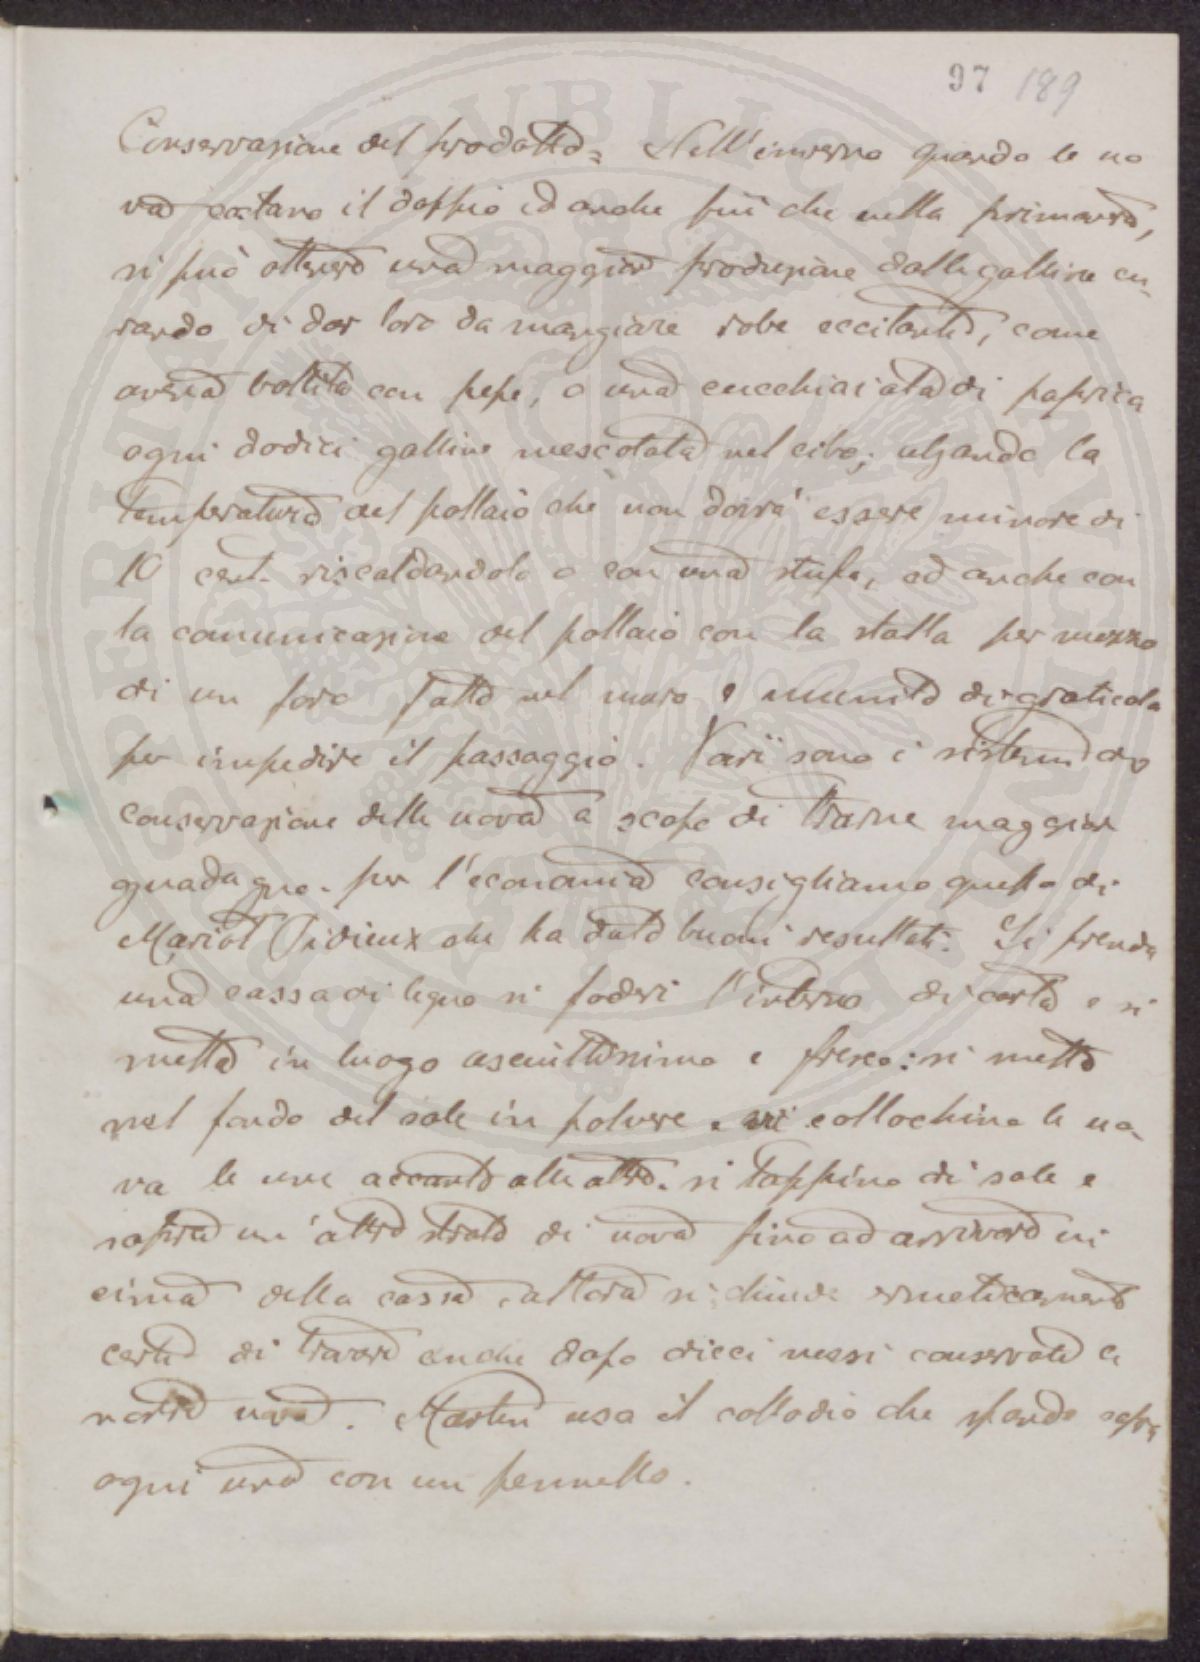 97 189
Conservazione del prodotto = Nell'inverno quando le uo
va costano il doppio ed anche più che nella primavera,
si può ottenere una maggior produzione dalle galline cu-
rando di dar loro da mangiare robe eccitanti, come
avena bollita con pepe, o una cucchiaiata di paprica
ogni dodici galline mescolata nel cibo; alzando la
temperatura del pollaio che non dovrà essere minore di
10 cent. riscaldandolo o con una stufa, od anche con
la comunicazione del pollaio con la stalla per mezzo
di un foro fatto nel muro e munito di graticola
per impedire il passaggio. Varii sono i sistemi di
conservazione delle uova a scopo di trarne maggior
guadagno. per l'economia consigliamo quello di
Mariot Didieux che ha dato buoni resultati. Si prenda
una cassa di legno si foderi l'interno di carta e si
metta in luogo asciuttissimo e fresco: si metta
nel fondo del sale in polvere e vi collochino le uo-
va le une accanto alle altre. si tappino di sale e
sopra un'altro strato di uova fino ad arrivare in
cima della cassa, allora si chiude ermeticamente
certi di trovare anche dopo dieci messi conservate le
nostre uova. Martin usa il collodio che spande sopra
ogni uova con un pennello.
PUBLICA SPERNIT